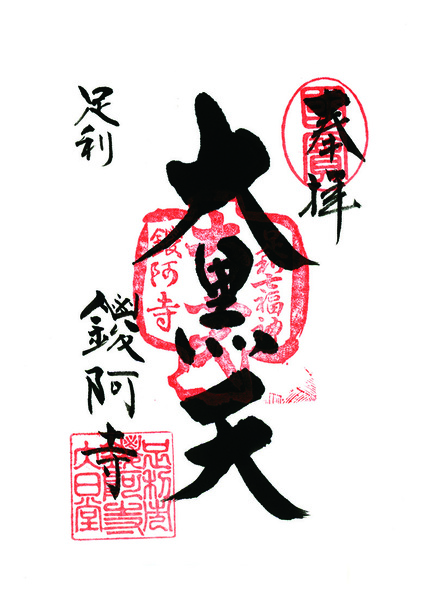 奉拝
大黒天
足利
鑁阿寺
足利七福神
鑁阿寺
足利市
鑁阿寺
大日堂